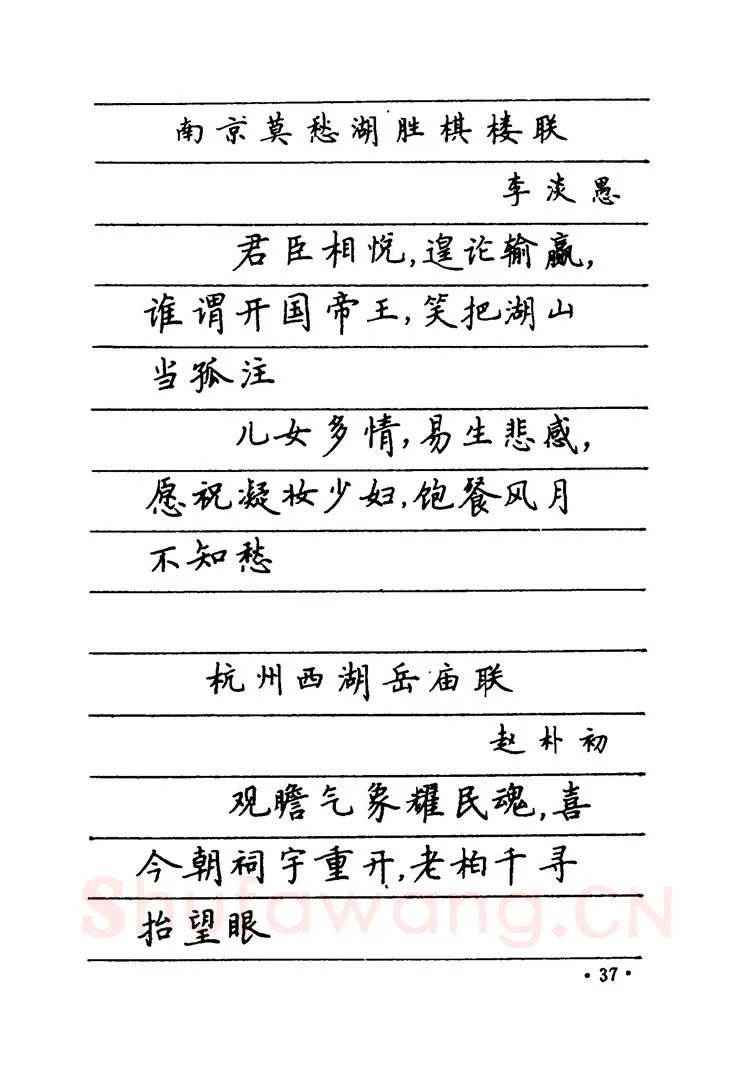 南京莫愁湖胜棋楼联
李淡愚
君臣相悦,遑论输赢,
谁谓开国帝王,笑把湖山
当孤注
儿女多情,易生悲感,
愿祝凝妆少妇,饱餐风月
不知愁
杭州西湖岳庙联
赵朴初
观瞻气象耀民魂,喜
今朝祠宇重开,老柏千寻
抬望眼
Shufawang.CN
·37·